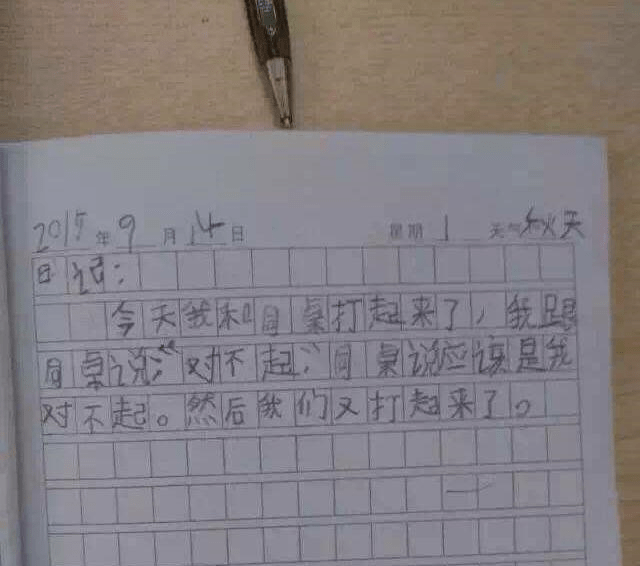 2015年9月14日 星期1 天气秋天
日记：
今天我和同桌打起来了，我跟
同桌说：“对不起；”同桌说应该是我
对不起。然后我们又打起来了。